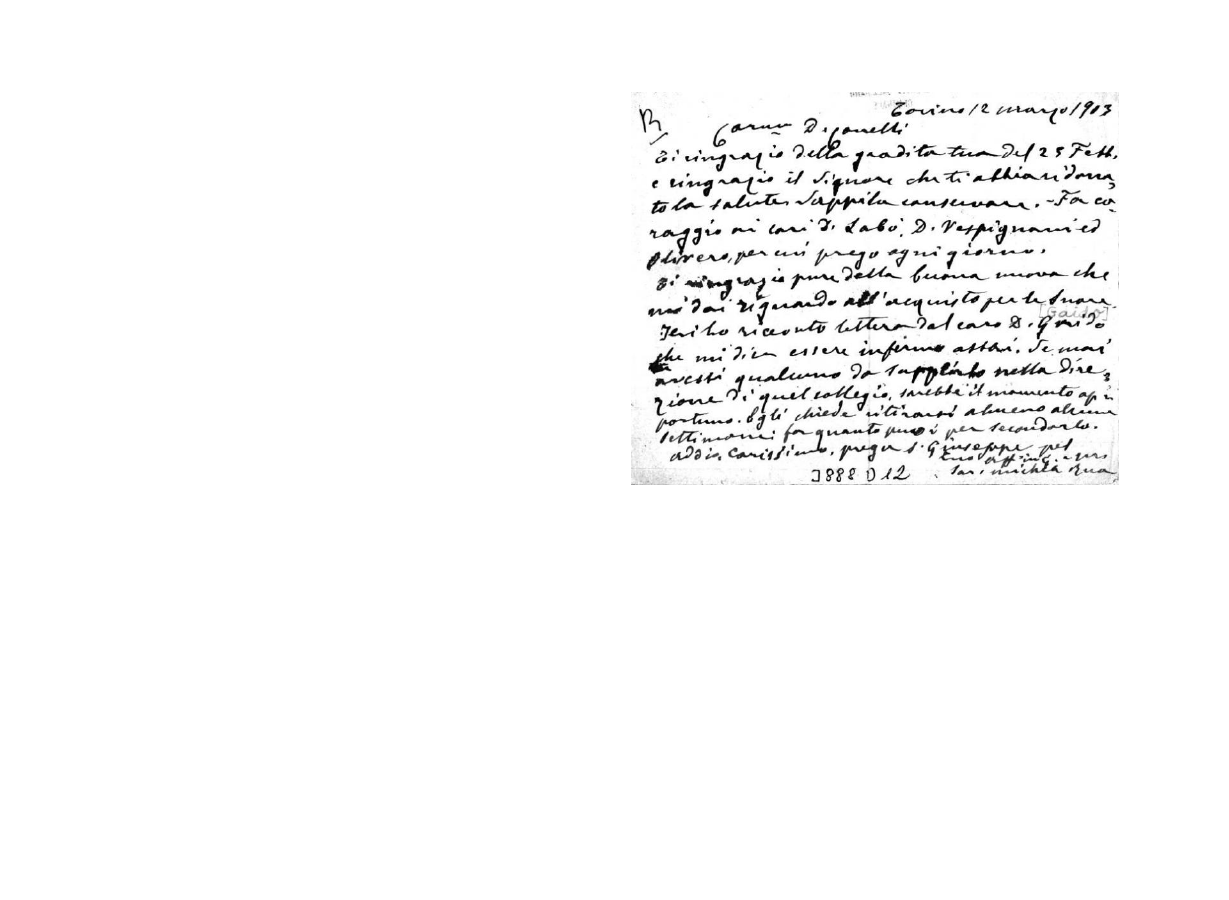 Torino 12 marzo 1903
R
Carmo D. Conelli
Ti ringrazio della gradita tua del 25 Febb.
e ringrazio il Signore che ti abbia ridona-
to la salute. Sappila conservare. - Fa co-
raggio ai cari D. Labò, D. Vespignani ed
Olivero, per cui prego ogni giorno.
Ti ringrazio pure della buona nuova che
mi dai riguardo all'acquisto per le Suore
[Gaido]
Jeri ho ricevuto lettera dal caro D. Gaido
che mi dice essere infermo assai. Se mai
avessi qualcuno da supplirlo nella dire-
zione di quel collegio, sarebbe il momento op
portuno. Egli chiede ritirarsi almeno alcune
settimane: fa quanto puoi per secondarlo.
Addio, Carissimo, prega S. Giuseppe pel
tuo aff. in G. e
Sac. Michele Rua
3888 D 12